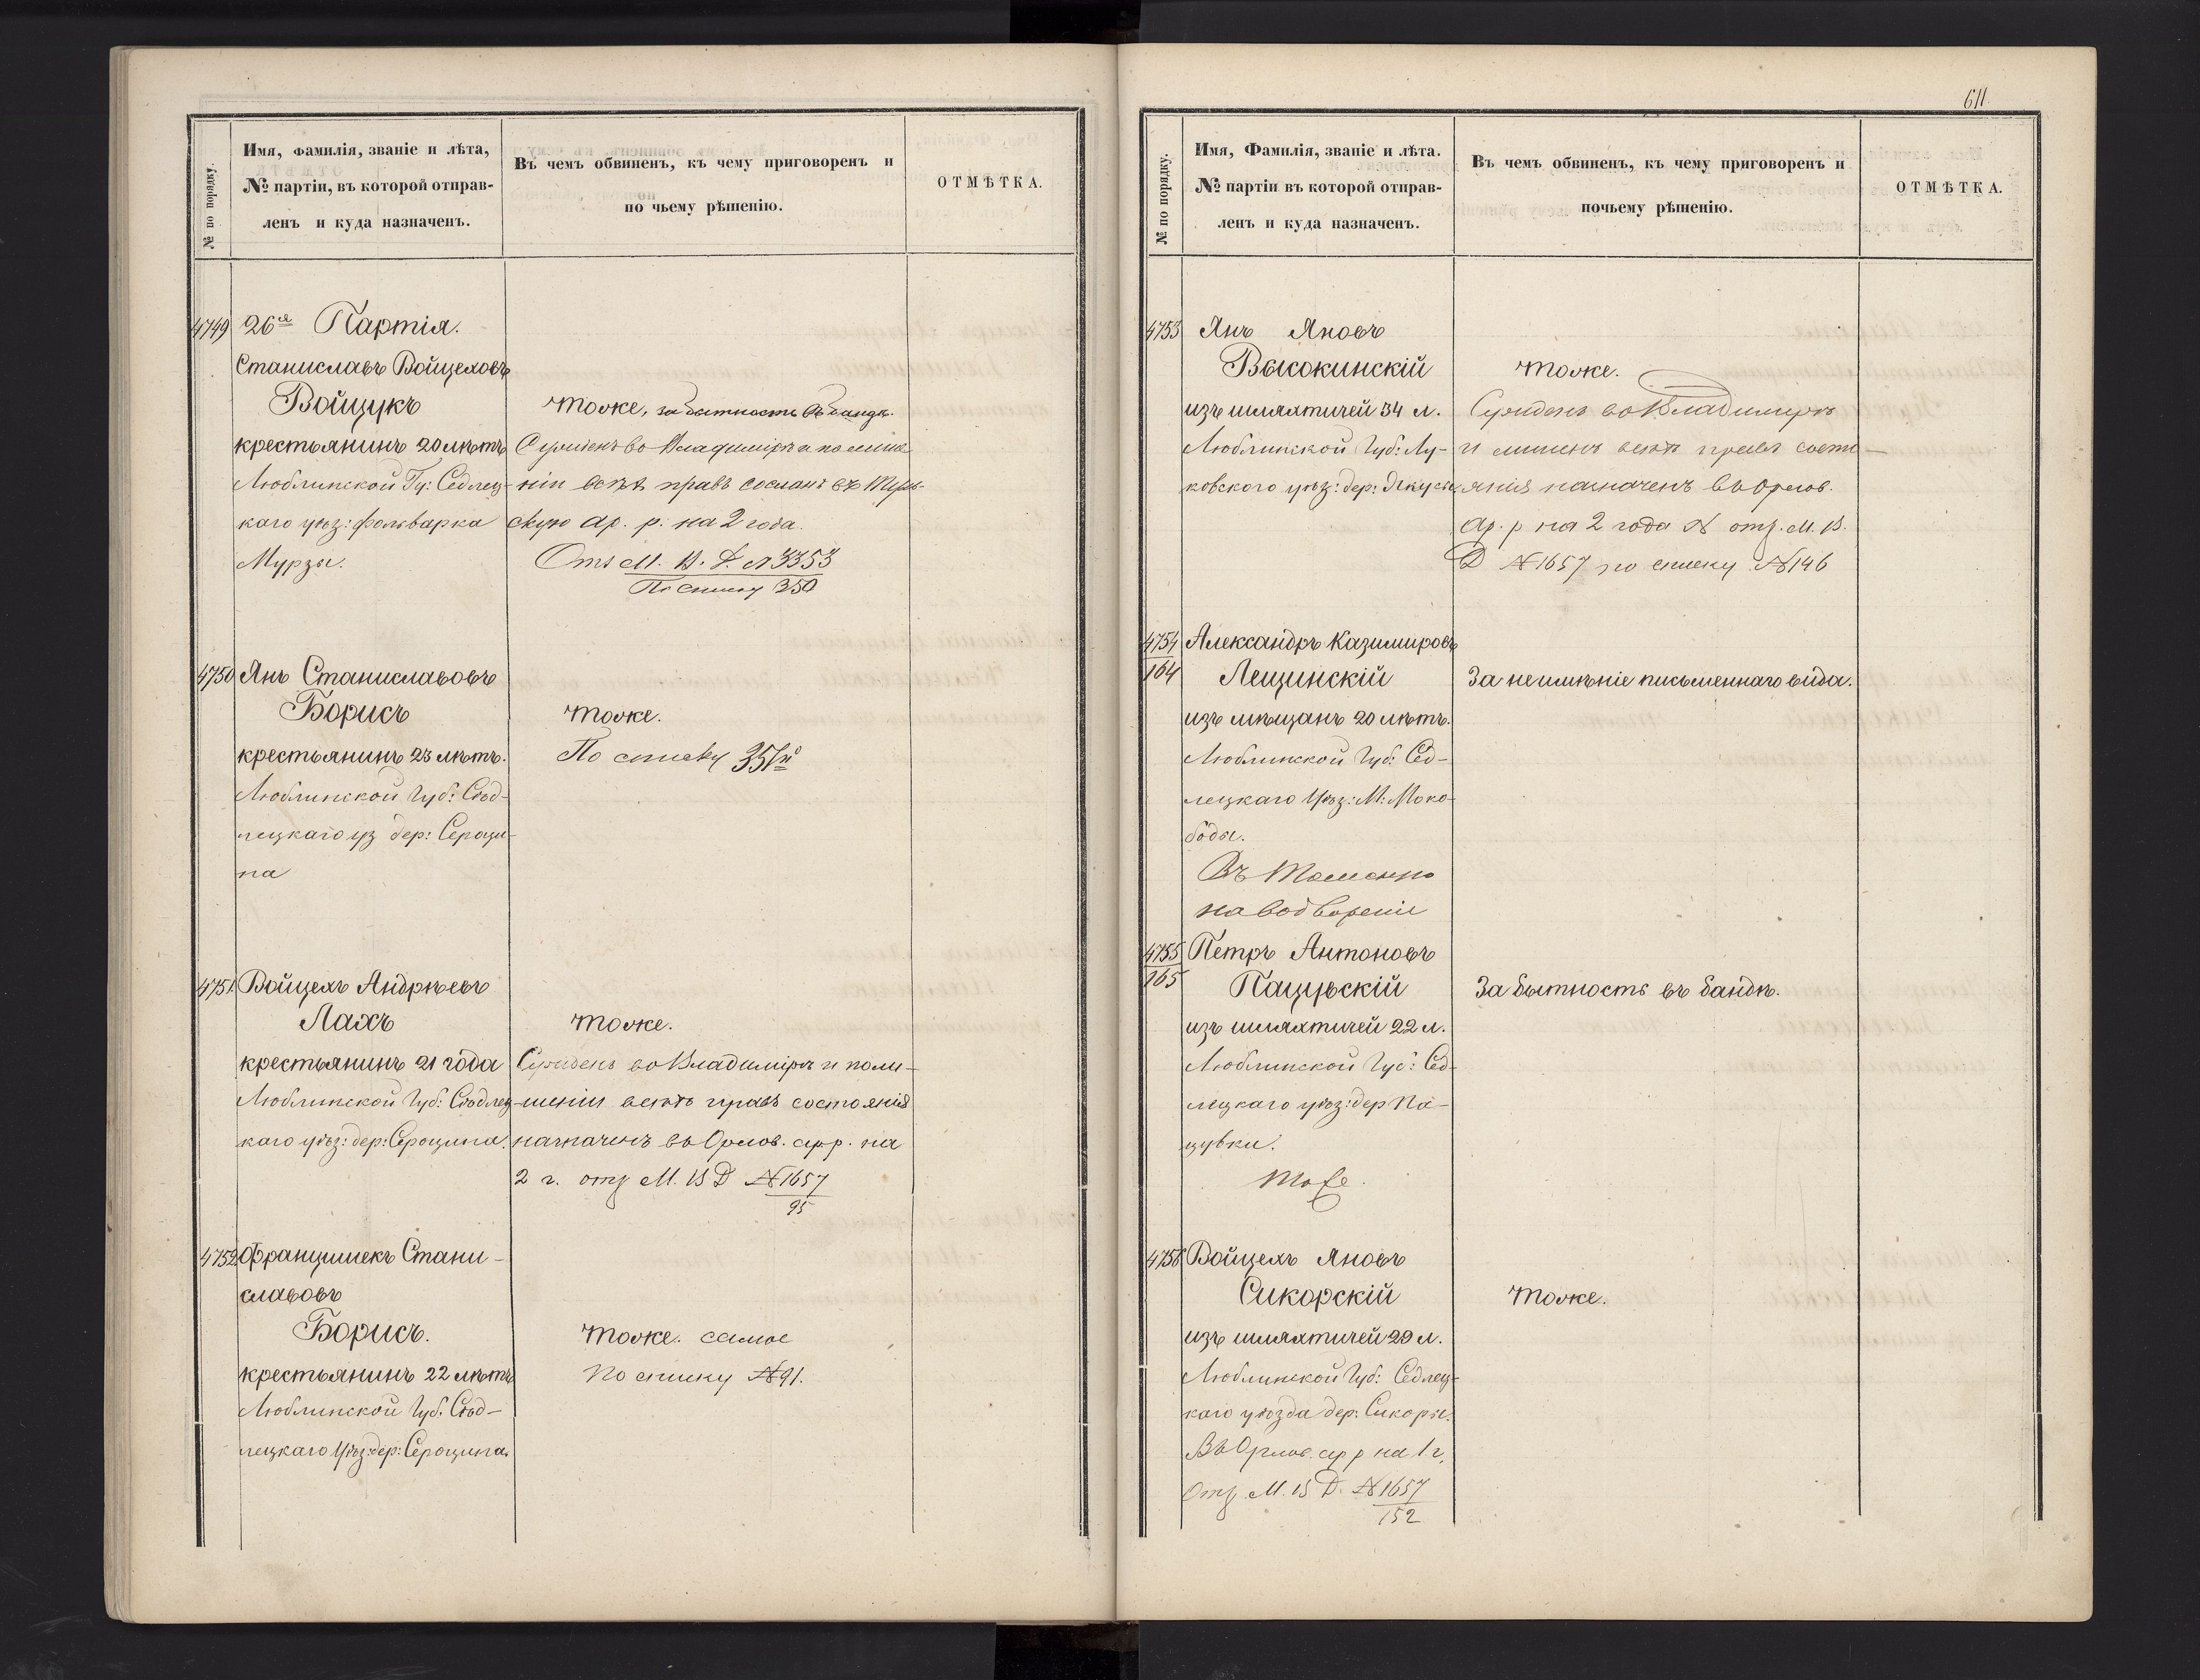 № по порядку.
Имя, Фамилія, званіе и лѣта,
№ партіи, въ которой отправ-
ленъ и куда назначенъ.
Въ чемъ обвиненъ, къ чему приговоренъ и
по чьему рѣшенію.
ОТМѢТКА.
4749 26я Партія.
Станиславъ Войцеховъ
Войцукъ
крестьянинъ 20 лѣтъ
Люблинской Гу: Седлец-
каго уѣз: фольварка
Мурзы.
Тоже, за бытность въ бандѣ.
Сужденъ во Владимірѣ и по лише-
ніи всѣхъ правъ сосланъ въ
скую ар. р. на 2 года.
Отз М. В. Д. № 3353
По списку 350
4750 Янъ Станиславовъ
Борисъ
крестьянинъ 23 лѣтъ.
Люблинской Губ: Сѣд-
лецкаго уз дер: Серочи-
на
Тоже.
По списку 351й
4751 Войцехъ Андрѣевъ
Лахъ
крестьянинъ 21 года
Люблинской Губ: Сѣдлец-
каго уѣз: дер: Серочина.
Тоже.
Сужденъ во Владимірѣ и по ли-
шеніи всѣхъ правъ состоянія
назначенъ въ Орлов. ар р. на
2 г. отз М. В Д № 1657
95
4752 Францишекъ Стани-
славовъ
Борисъ.
крестьянинъ 22 лѣтъ
Люблинской Губ. Сѣд-
лецкаго Уѣз: дер: Серочина.
Тоже. самое
По списку № 91.
611
№ по порядку.
Имя, Фамилія, званіе и лѣта.
№ партіи въ которой отправ-
ленъ и куда назначенъ.
Въ чемъ обвиненъ, къ чему приговоренъ и
почьему рѣшенію.
ОТМѢТКА.
4753 Янъ Яновъ
Высокинскій
изъ шляхтичей 34 л.
Люблинской Губ: Лу-
ковского уѣз: дер:
Тоже.
Сужденъ во Владимирѣ
и лишенъ всѣхъ правъ состо-
янія назначенъ въ Орлов.
Ар. р на 2 года № отз. М. В.
Д № 1657 по списку № 146
4754
164
Александръ Казимировъ
Лещинскій
изъ мѣщанъ 20 лѣтъ.
Люблинской Губ: Сед-
лецкаго Уѣз: М: Моко-
боды.
Въ
на водвореніе
За неимѣніе письменнаго вида.
4755
165
Петръ Антоновъ
Пацувскій
изъ шляхтичей 22 л.
Люблинской Губ: Сед-
лецкаго уѣз: дер Па-
цувки.
Тоже.
За бытность въ бандѣ.
4756 Войцехъ Яновъ
Сикорскій
изъ шляхтичей 29 л.
Люблинской Губ: Седлец-
каго уѣзда дер: Сикоры.
Въ Орлов. ар р на 1 г,
Отз. М. В Д. № 1657
152
Тоже.